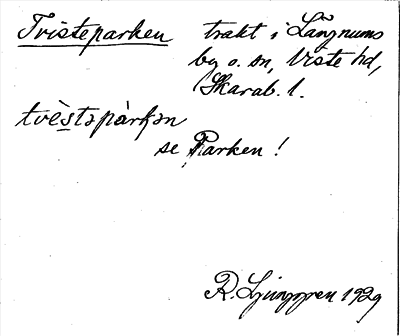 Tvisteparken trakt i Långnums
by o. sn, Viste hd,
Skarab. l.
tvèstəpàrkən
se Parken!
R. Ljunggren 1929